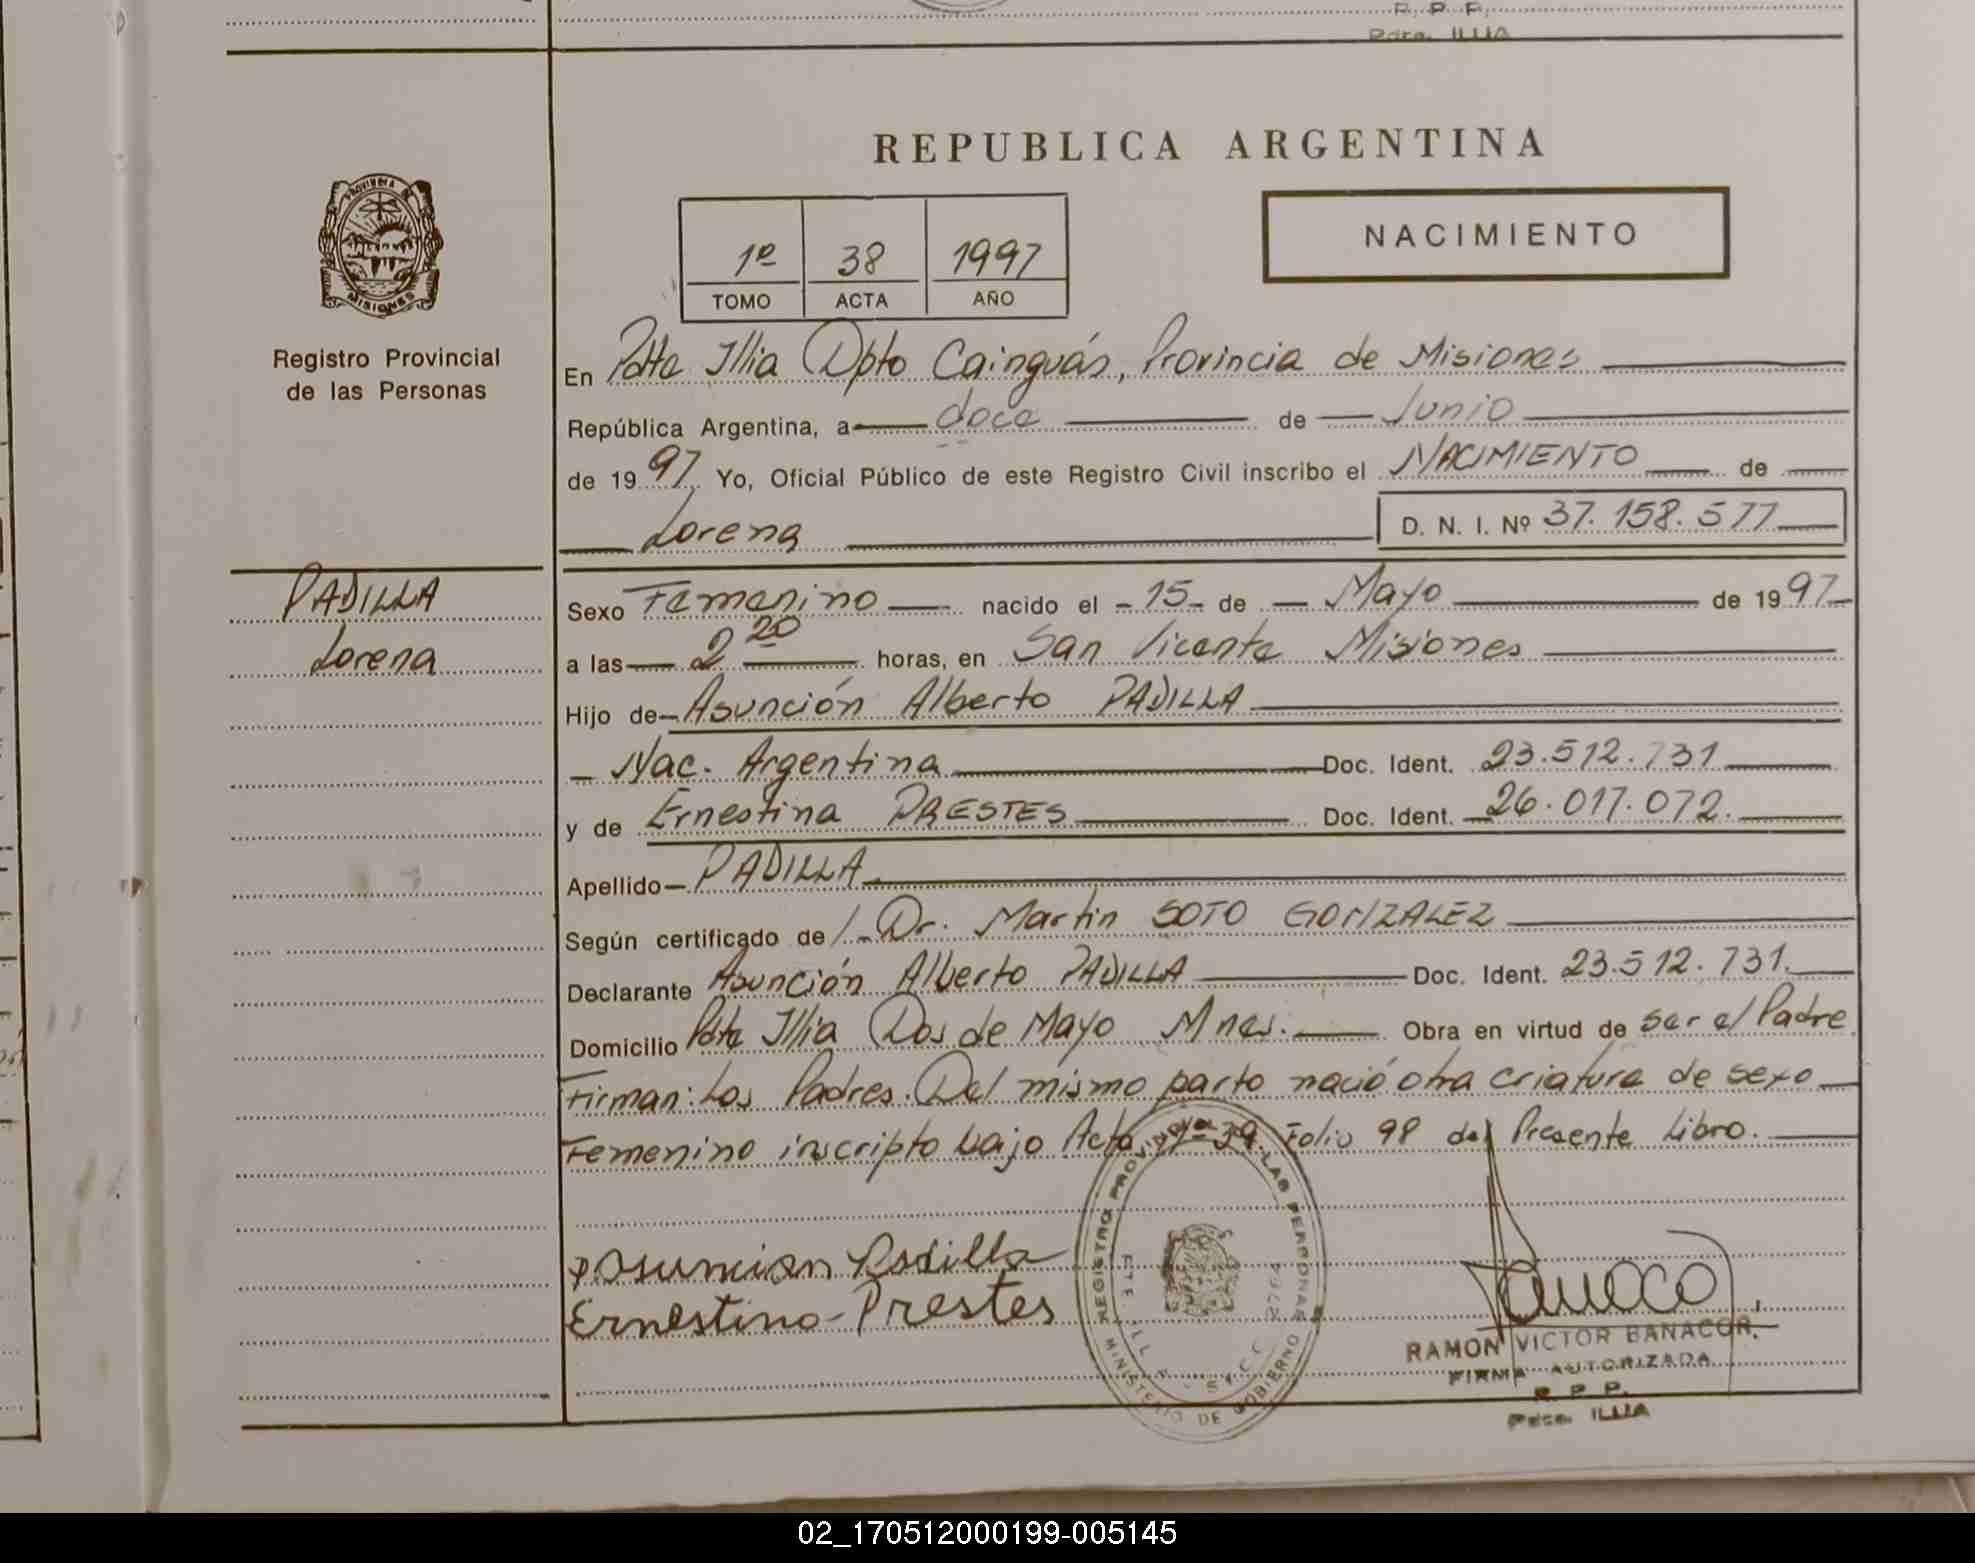 R. P. P.
Pdte. ILLIA
REPUBLICA ARGENTINA
PROVINCIA DE
MISIONES
Registro Provincial
de las Personas
1º 38 1997
TOMO ACTA AÑO
NACIMIENTO
En Pdte Illia Dpto Cainguás, Provincia de Misiones
República Argentina, a doce de Junio
de 1997 Yo, Oficial Público de este Registro Civil inscribo el NACIMIENTO de
Lorena D. N. I. Nº 37.158.577
PADILLA
Lorena
Sexo Femenino nacido el -15- de Mayo de 1997
a las 2 20 horas, en San Vicente Misiones
Hijo de Asunción Alberto PADILLA
Nac. Argentina Doc. Ident. 23.512.731
y de Ernestina PRESTES Doc. Ident. 26.017.072.
Apellido PADILLA
Según certificado de Dr. Martin SOTO GONZALEZ
Declarante Asunción Alberto PADILLA Doc. Ident. 23.512.731.
Domicilio Pdte Illia Dos de Mayo Mnes. Obra en virtud de ser el Padre
Firman: Los Padres. Del mismo parto nació otra criatura de sexo
Femenino inscripto bajo Acta Nº 39 Folio 98 del Presente Libro.
Asuncion Padilla
Ernestina Prestes
REGISTRO PROVINCIAL DE LAS PERSONAS
MINISTERIO DE GOBIERNO
RAMON VICTOR BANACOR
FIRMA AUTORIZADA
R. P. P.
Pdte. ILLIA
02_170512000199-005145